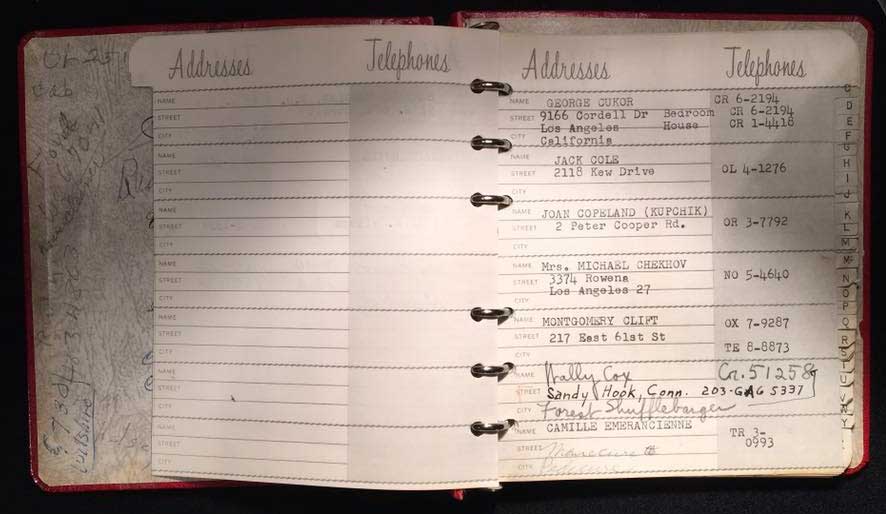 Addresses Telephones
NAME
STREET
CITY
NAME
STREET
CITY
NAME
STREET
CITY
NAME
STREET
CITY
NAME
STREET
CITY
NAME
STREET
CITY
NAME
STREET
CITY
Addresses Telephones
NAME GEORGE CUKOR CR 6-2194
STREET 9166 Cordell Dr Bedroom CR 6-2194
CITY Los Angeles House CR 1-4418
California
NAME JACK COLE
STREET 2118 Kew Drive OL 4-1276
CITY
NAME JOAN COPELAND (KUPCHIK)
STREET 2 Peter Cooper Rd. OR 3-7792
CITY
NAME Mrs. MICHAEL CHEKHOV
STREET 3374 Rowena NO 5-4640
CITY Los Angeles 27
NAME MONTGOMERY CLIFT OX 7-9287
STREET 217 East 61st St
CITY TE 8-8873
NAME Wally Cox Cr. 51258
STREET Sandy Hook, Conn. 203-GA6 5337
CITY Forest Shufflebarger
NAME CAMILLE EMERANCIENNE TR 3-
0993
STREET
CITY
C
D
E
F
G
H
I
J
K
L
M
N
O
P